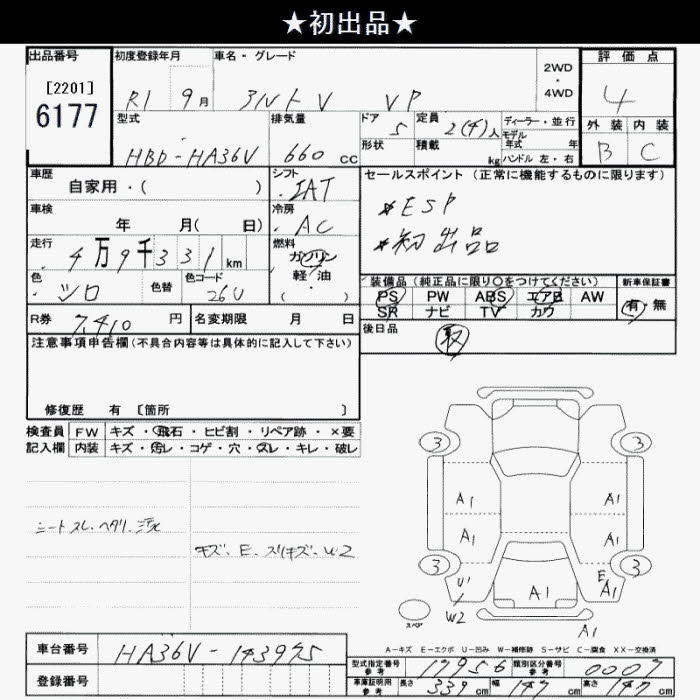 ★初出品★
出品番号 初度登録年月 車名・グレード 2WD ・ 4WD 評価点
[2201]
6177
R1 9月 ミNトV VP 4
型式 排気量 ドア 定員 ディーラー・並行 外装 内装
モデル
5 2(4)人 年式 年
形状 積載 kg ハンドル 左・右
HBD-HA36V 660 cc B C
車歴 シフト セールスポイント(正常に機能するものに限ります)
自家用・( ) IAT
*ESP
車検 冷房
年 月( 日) AC
*初出品
走行 燃料
4万9千331km ガソリン
軽・油
・( )
色 色替 色コード 装備品(純正品に限り○をつけてください) 新車保証書
シロ 26U PS PW ABS エアB AW 有・無
SR ナビ TV カワ
R券 7,410 円 名変期限 月 日 後日品
取
注意事項申告欄(不具合内容等は具体的に記入して下さい)
修復歴 有 [箇所 ]
検査員 FW キズ・飛石・ヒビ割・リペア跡・×要
記入欄 内装 キズ・汚レ・コゲ・穴・スレ・キレ・破レ
3 3
A1 A1
A1 A1
シートスレ.ヘタリ.
キズ、E、スリキズ、W2
3 3
U1 A1 E A1
W2
スペア
A1
A-キズ E-エクボ U-凹み W-補修跡 S-サビ C-腐食 XX-交換済
車台番号 HA36V-143975
型式指定番号 参考 17956 類別区分番号 参考 0007
登録番号
車庫証明用 参考 長さ 339cm 幅 147cm 高さ 147cm